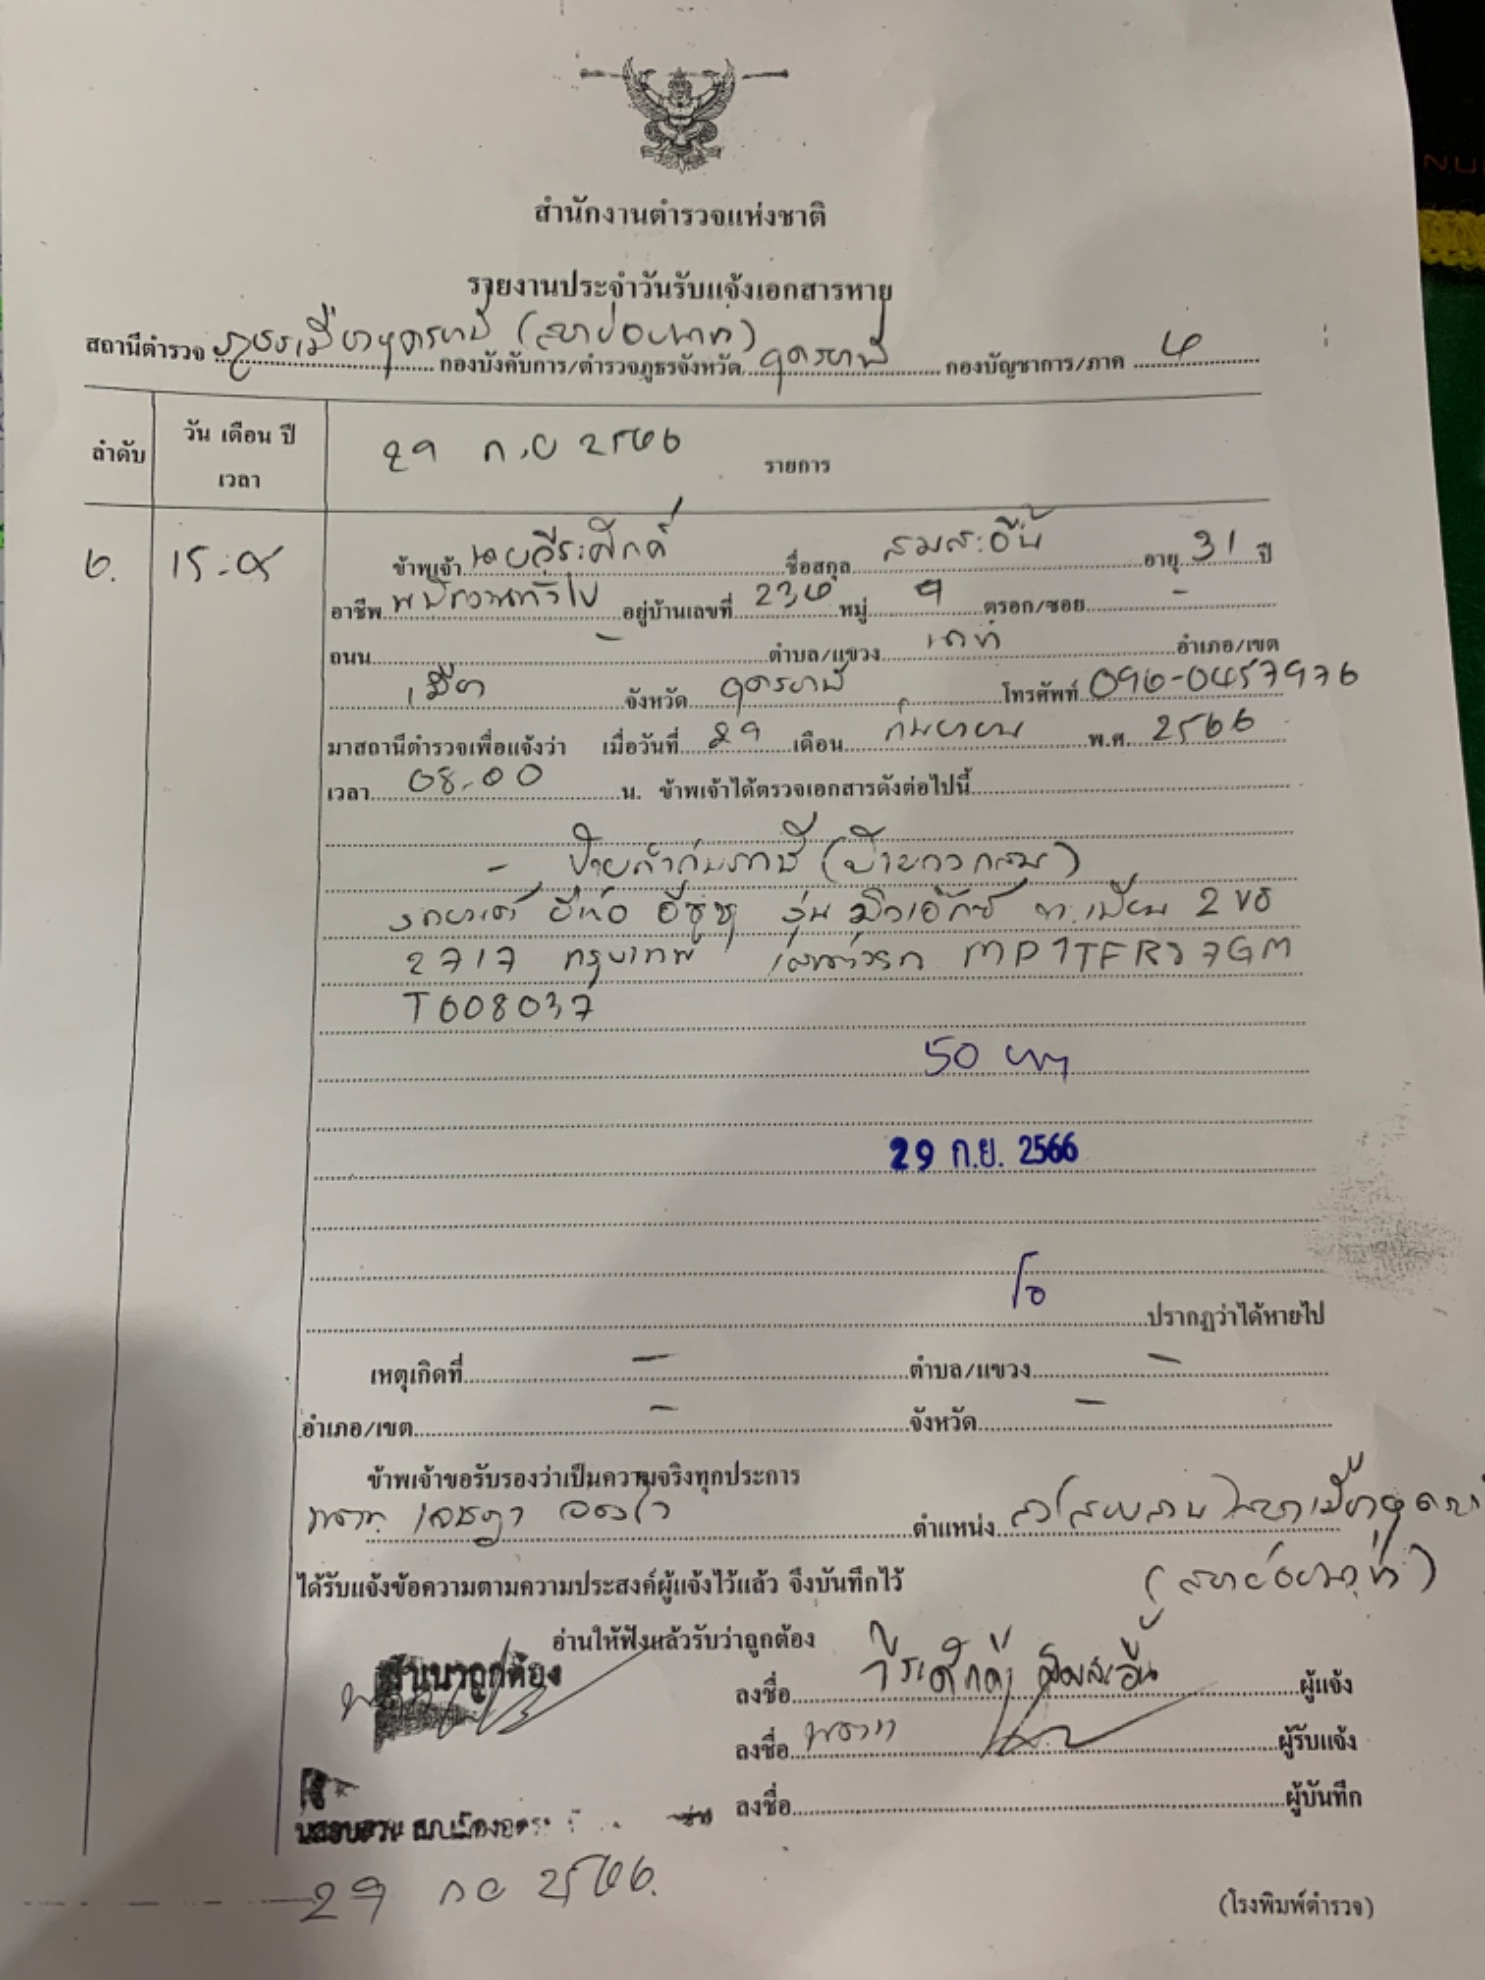 สำนักงานตำรวจแห่งชาติ
รายงานประจำวันรับแจ้งเอกสารหาย
สถานีตำรวจ ภูธรเมืองอุดรธานี กองบังคับการ/ตำรวจภูธรจังหวัด อุดรธานี กองบัญชาการ/ภาค ๔
ลำดับ วัน เดือน ปี เวลา 29 ก.ย 2566 รายการ
๖. 15.๐๕ ข้าพเจ้า นายวีระศักดิ์ ชื่อสกุล สมสะอื้น อายุ 31 ปี
อาชีพ พนักงานทั่วไป อยู่บ้านเลขที่ หมู่ 9 ตรอก/ซอย -
ถนน - ตำบล/แขวง อำเภอ/เขต
เมือง จังหวัด อุดรธานี โทรศัพท์ 096-0457976
มาสถานีตำรวจเพื่อแจ้งว่า เมื่อวันที่ 29 เดือน กันยายน พ.ศ. 2566
เวลา 08.00 น. ข้าพเจ้าได้ตรวจเอกสารดังต่อไปนี้
- ป้ายกำกับภาษี (ป้ายวงกลม)
รถยนต์ ยี่ห้อ อีซูซุ รุ่น มิวเอ็กซ์ ทะเบียน 2 ขฮ
2717 กรุงเทพ เลขตัวรถ MP1TFR77GM
T008037
50 บาท
29 ก.ย. 2566
ปรากฏว่าได้หายไป
เหตุเกิดที่ - ตำบล/แขวง -
อำเภอ/เขต - จังหวัด -
ข้าพเจ้าขอรับรองว่าเป็นความจริงทุกประการ
ตำแหน่ง
ได้รับแจ้งข้อความตามความประสงค์ผู้แจ้งไว้แล้ว จึงบันทึกไว้
อ่านให้ฟังแล้วรับว่าถูกต้อง
สำเนาถูกต้อง
ลงชื่อ วีระศักดิ์ สมสะอื้น ผู้แจ้ง
ลงชื่อ ผู้รับแจ้ง
ลงชื่อ ผู้บันทึก
29 กย 2566.
(โรงพิมพ์ตำรวจ)